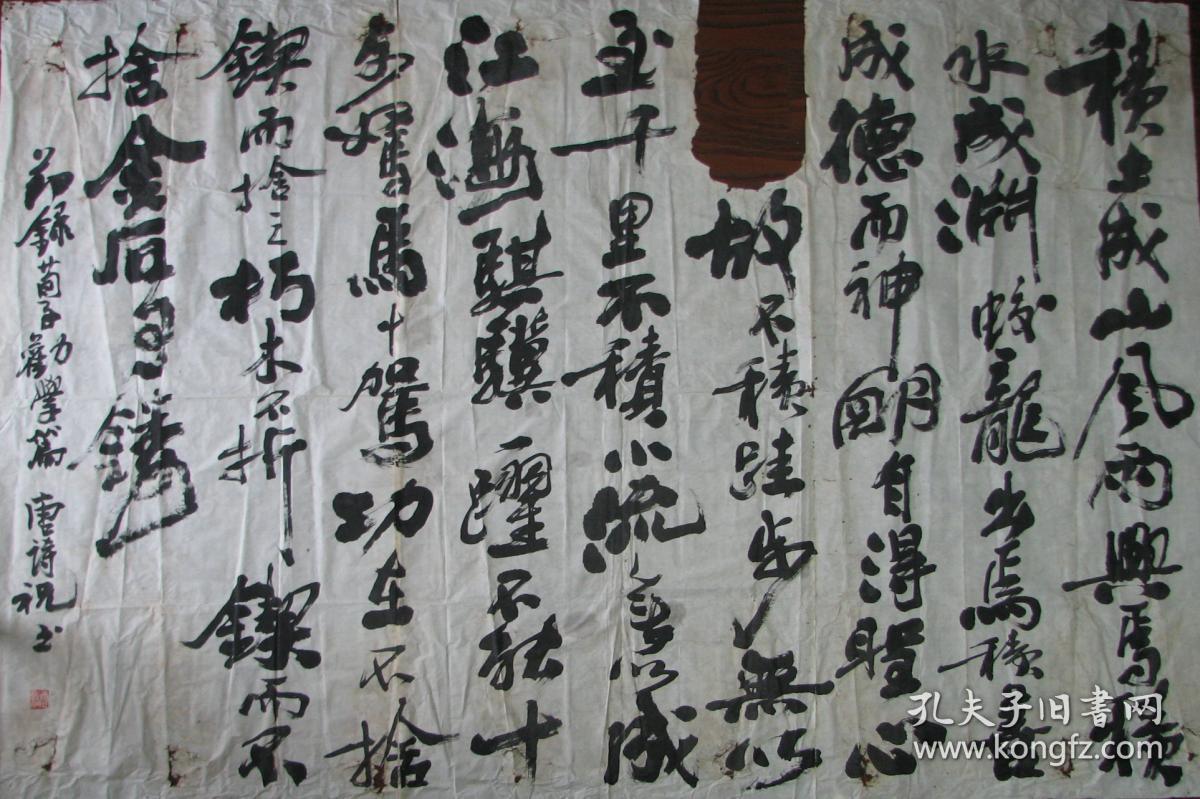 積土成山風雨興焉積
水成淵蛟龍出焉積善
成德而神明自得聖心
故不積跬步無以
至千里不積小流無以成
江海騏驥一躍不能十
步駑馬十駕功在不捨
鍥而捨之朽木不折鍥而不
捨金石可鏤
節録荀子勸學篇 唐詩祝书
孔夫子旧书网
www.kongfz.com